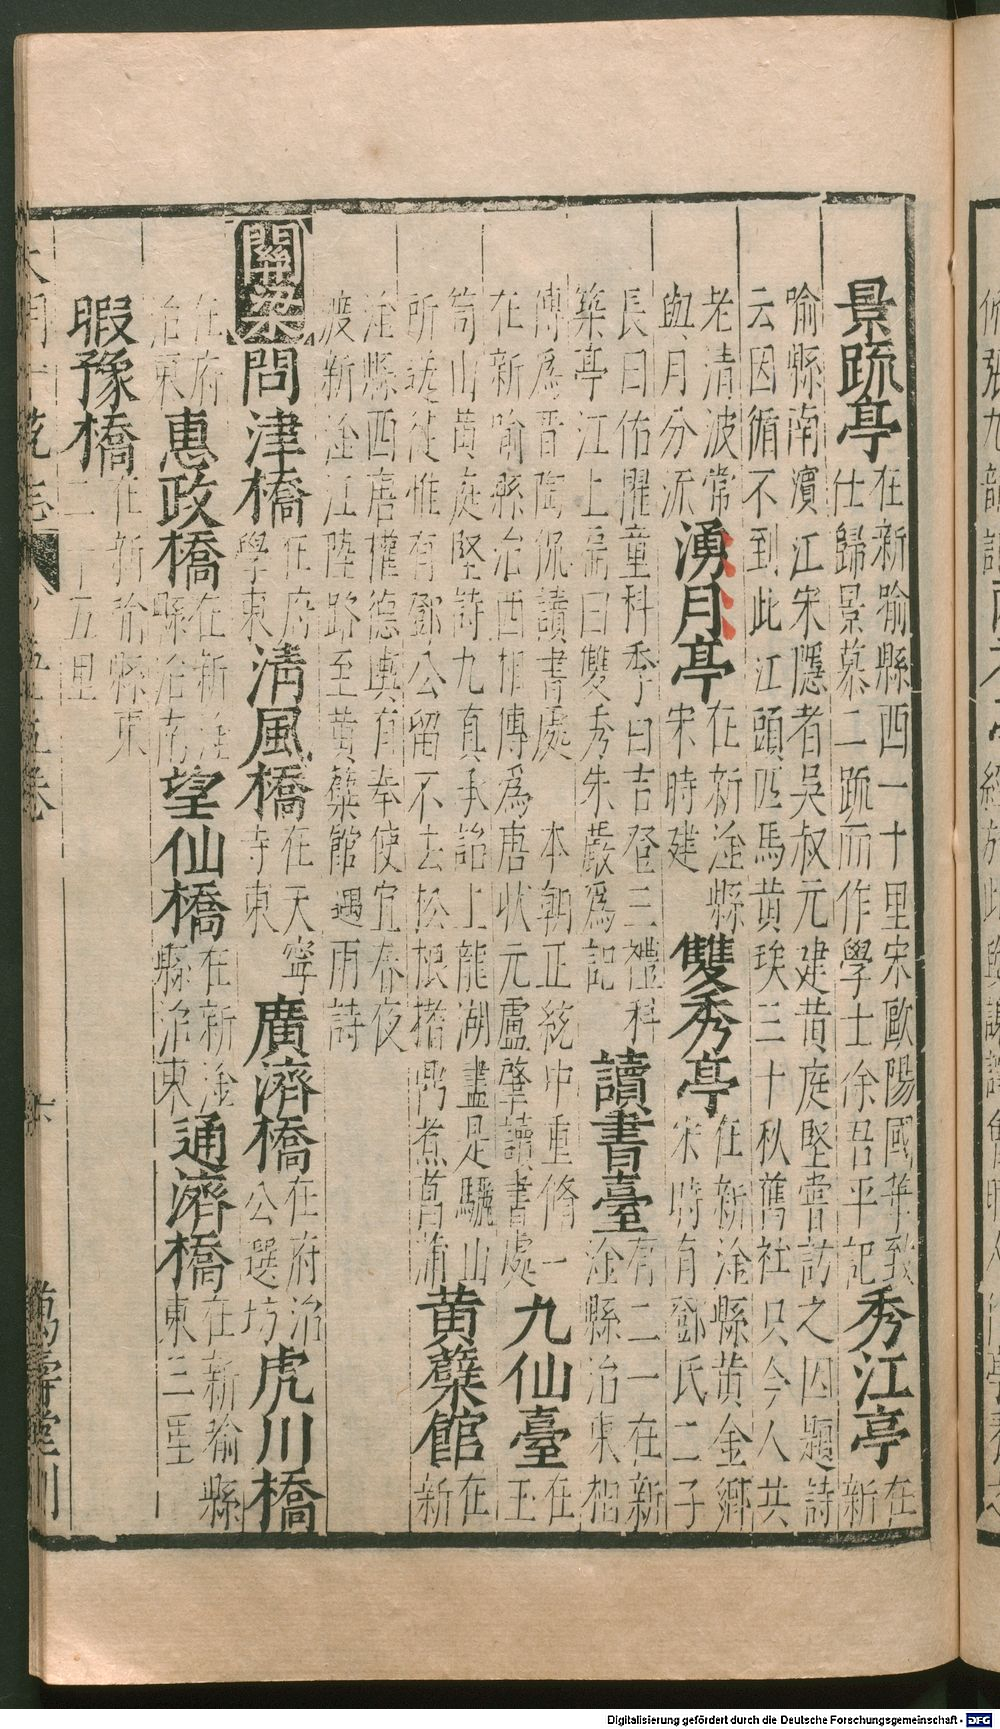 景疏亭在新喻縣西一十里宋歐陽國華致仕歸景慕二疏而作學士徐吾平記秀江亭在新
喻縣南濱江宋隱者吳叔元建黃庭堅嘗訪之因題詩云因循不到此江頭匹馬黃埃三十秋舊社只今人共
老清波常與月分派湧月亭在新淦縣宋時建雙秀亭在新淦縣黃金鄉宋時有鄧氏二子
長曰佑擢童科季曰吉登三禮科築亭江上扁曰雙秀朱嚴爲記讀書臺有二一在新淦縣治東相
傳爲晉陶侃讀書處 本朝正統中重脩一在新喻縣治西相傳爲唐狀元盧肇讀書處九仙臺在玉
笥山黃庭堅詩九真承詔上龍湖盡是驪山所送徒惟有鄧公留不去松根搘鼎煮菖蒲黃蘗館在新
淦縣西唐權德輿有奉使宜春夜渡新淦江陸路至黃蘗館遇雨詩
關梁問津橋在府學東清風橋在天寧寺東廣濟橋在府治公選坊虎川橋
在府治東惠政橋在新淦縣治南望仙橋在新淦縣治東通濟橋在新喻縣東三里
暇豫橋在新喻縣東二十五里
萬壽堂刊
Digitalisierung gefördert durch die Deutsche Forschungsgemeinschaft - DFG